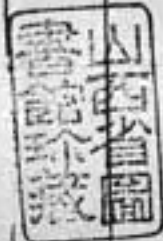 山西省圖
書館珍藏